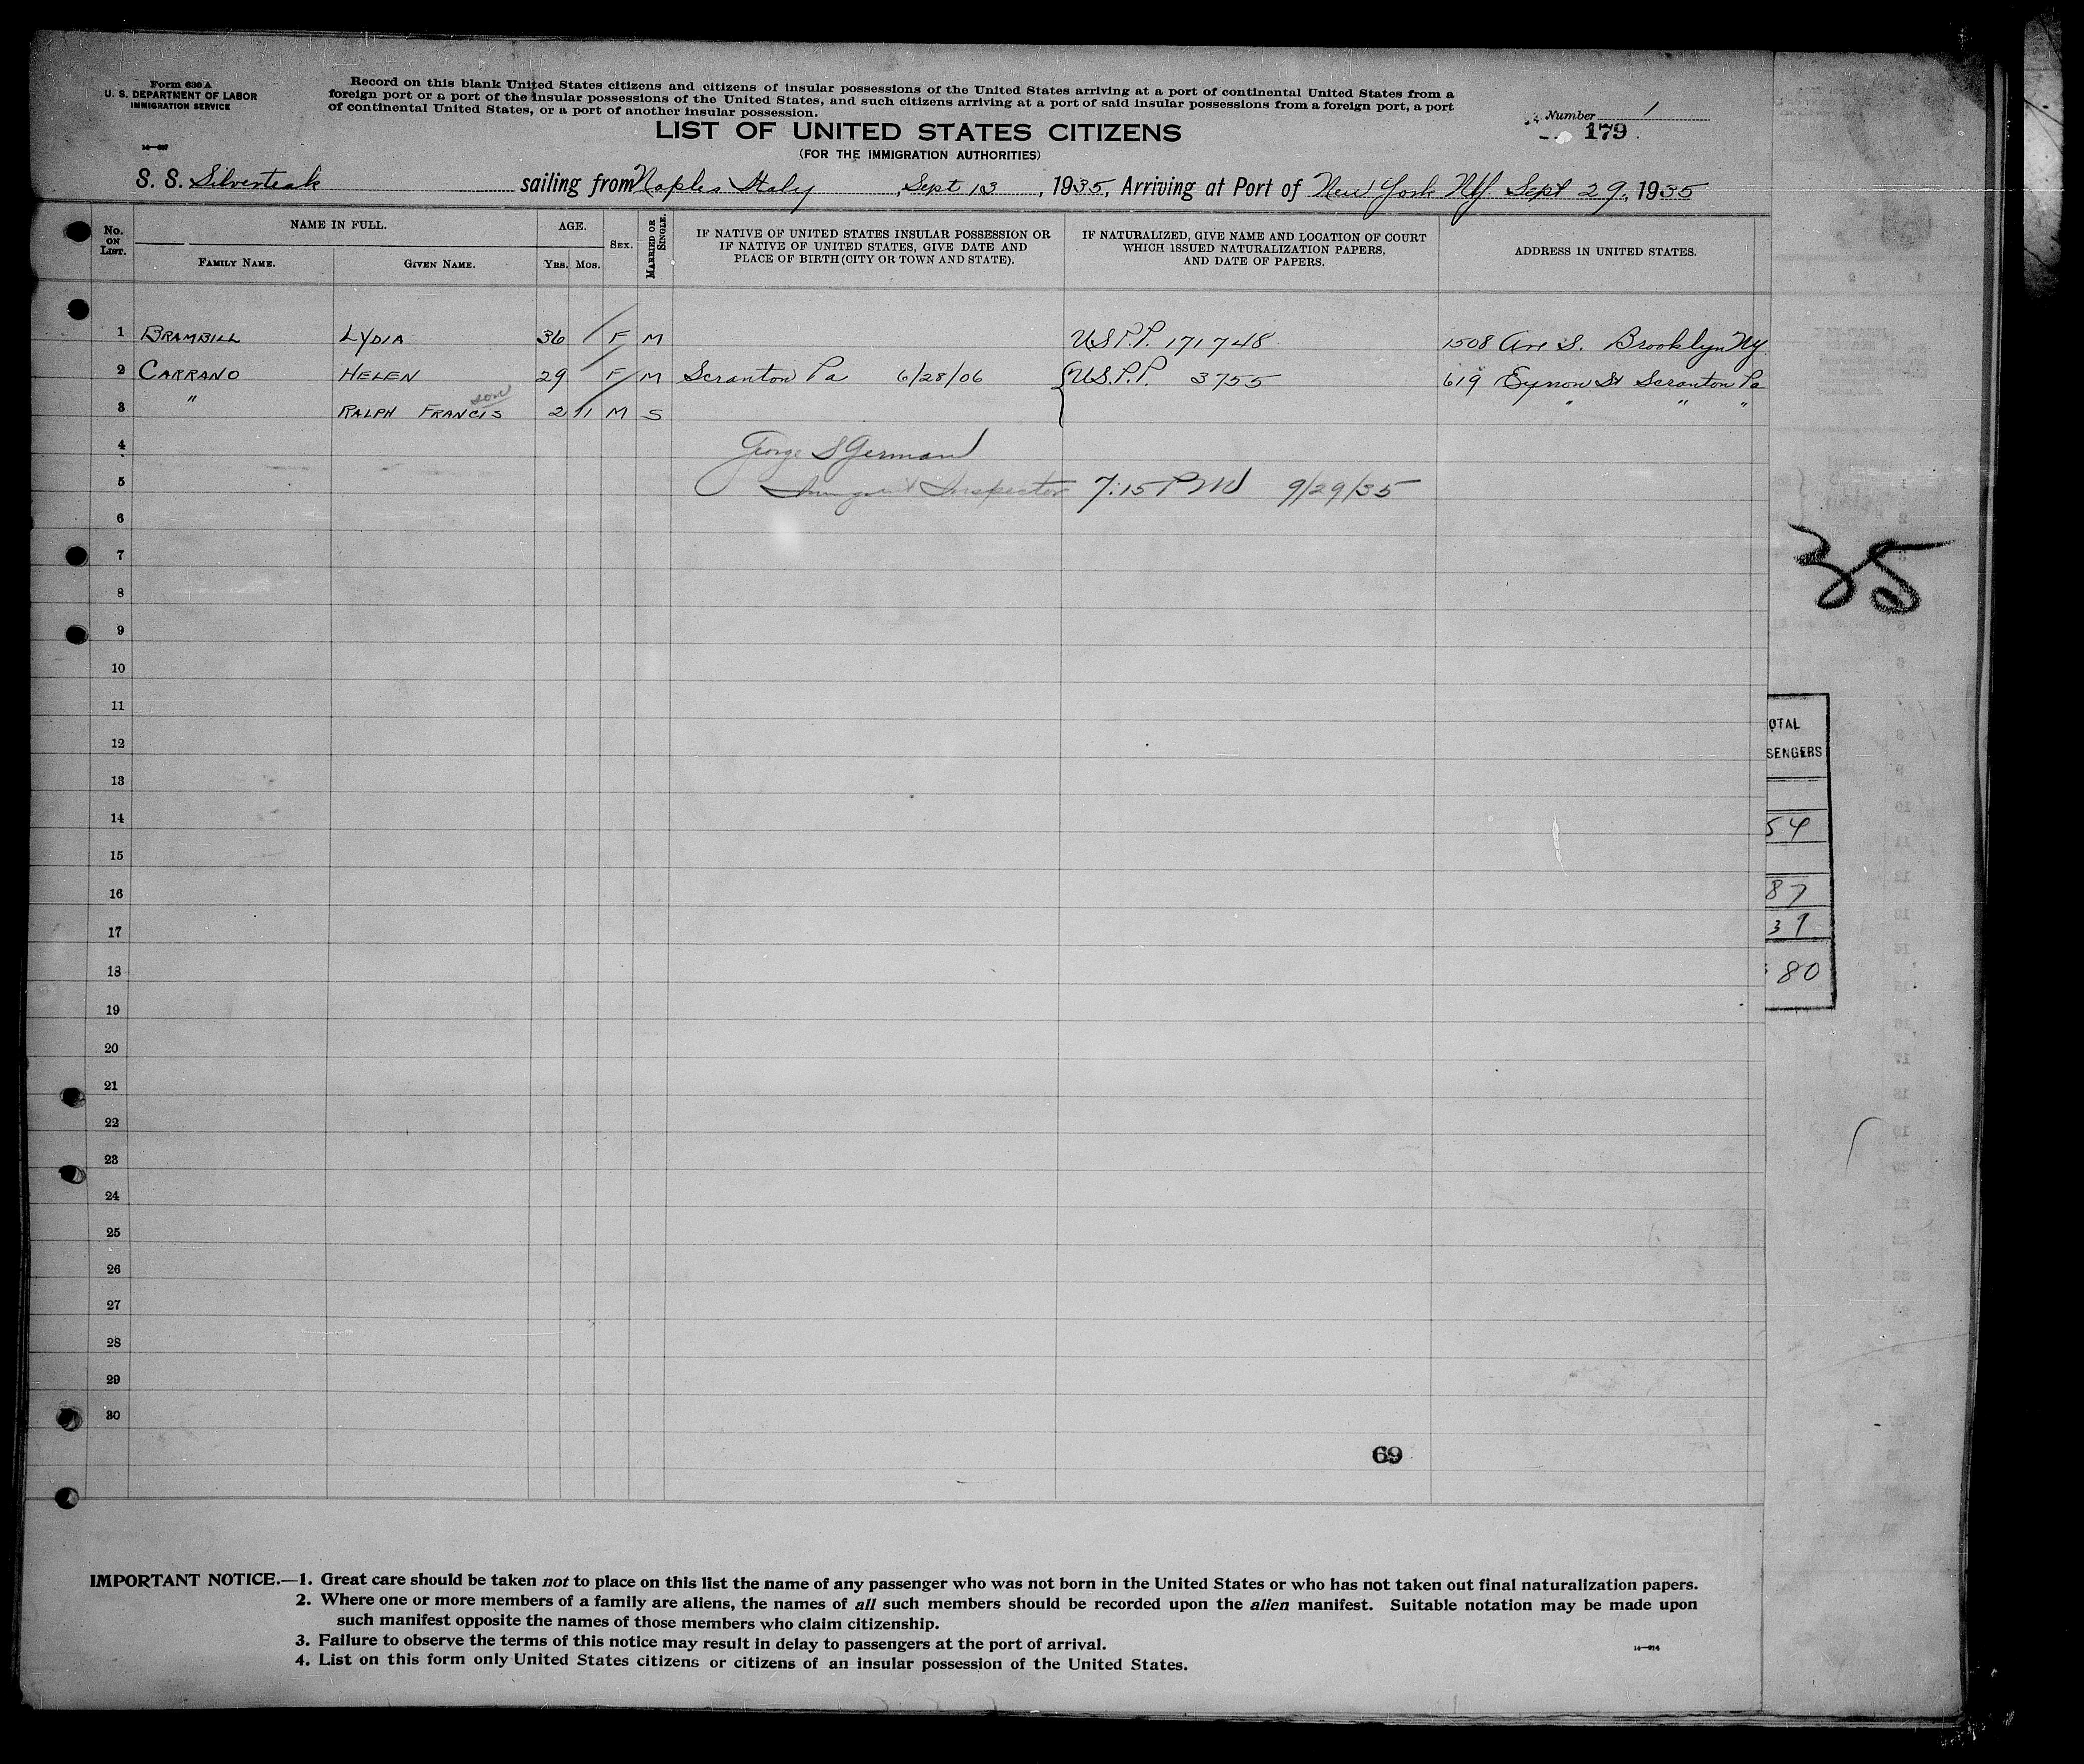 Form 630 A
U. S. DEPARTMENT OF LABOR
IMMIGRATION SERVICE
Record on this blank United States citizens and citizens of insular possessions of the United States arriving at a port of continental United States from a
foreign port or a port of the insular possessions of the United States, and such citizens arriving at a port of said insular possessions from a foreign port, a port
of continental United States, or a port of another insular possession.
LIST OF UNITED STATES CITIZENS
(FOR THE IMMIGRATION AUTHORITIES)
Number 1
179
S. S. Silverteak sailing from Naples Italy, Sept 13, 1935, Arriving at Port of New York NY. Sept 29, 1935
No. ON LIST.
NAME IN FULL.
FAMILY NAME.
GIVEN NAME.
AGE.
YRS. MOS.
SEX.
MARRIED OR SINGLE.
IF NATIVE OF UNITED STATES INSULAR POSSESSION OR
IF NATIVE OF UNITED STATES, GIVE DATE AND
PLACE OF BIRTH (CITY OR TOWN AND STATE).
IF NATURALIZED, GIVE NAME AND LOCATION OF COURT
WHICH ISSUED NATURALIZATION PAPERS,
AND DATE OF PAPERS.
ADDRESS IN UNITED STATES.
1 BRAMBILL LYDIA 36 F M U S P.P. 171748 1508 Ave S. Brooklyn Ny
2 CARRANO HELEN 29 F M Scranton Pa 6/28/06 U.S.P.P. 3755 619 Eynon St Scranton Pa
son
3 " RALPH FRANCIS 2 11 M S " " "
4 George S German
5 Immigrant Inspector 7:15 PM 9/29/35
6
7
8
9
10
11
12
13
14
15
16
17
18
19
20
21
22
23
24
25
26
27
28
29
30
35
OTAL
SENGERS
54
87
39
80
69
IMPORTANT NOTICE.—1. Great care should be taken not to place on this list the name of any passenger who was not born in the United States or who has not taken out final naturalization papers.
2. Where one or more members of a family are aliens, the names of all such members should be recorded upon the alien manifest. Suitable notation may be made upon
such manifest opposite the names of those members who claim citizenship.
3. Failure to observe the terms of this notice may result in delay to passengers at the port of arrival.
4. List on this form only United States citizens or citizens of an insular possession of the United States.